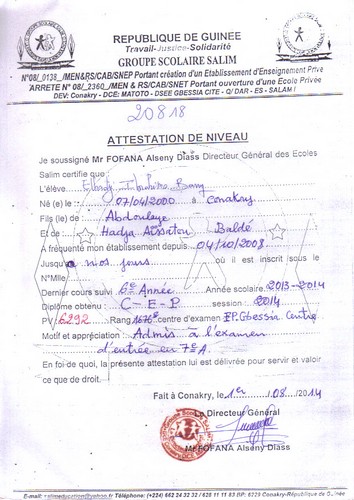 REPUBLIQUE DE GUINEE
Travail-Justice-Solidarité
GROUPE SCOLAIRE SALIM
N°08/_0138_/MEN&RS/CAB/SNEP Portant création d'un Etablissement d'Enseignement Privé
ARRETE N° 08/_2360_/MEN & RS/CAB/SNEP Portant ouverture d'une Ecole Privée
DEV: Conakry - DCE: MATOTO - DSEE GBESSIA CITE - Q/ DAR - ES - SALAM I
20818
ATTESTATION DE NIVEAU
Je soussigné Mr FOFANA Alseny Diass Directeur Général des Ecoles
Salim certifie que
L'élève Elhadj Ibrahima Barry
Né (e) le : 07/04/2000 à Conakry
Fils (le) de : Abdoulaye
Et de : Hadja Aïssatou Baldé
A fréquenté mon établissement depuis 04/10/2008
Jusqu'à nos jours où il est inscrit sous le
N°Mlle
Dernier cours suivi 6e Année Année scolaire 2013-2014
Diplôme obtenu : C-E-P session : 2014
PV: 6292 Rang 1676e centre d'examen EP.Gbessia Centre
Motif et appréciation : Admis à l'examen
d'entrée en 7e A
En foi de quoi, la présente attestation lui est délivrée pour servir et valoir
ce que de droit.
Fait à Conakry, le 1er /08 /2014
Le Directeur Général
Mr FOFANA Alseny Diass
E-mail: salimeducation@yahoo.fr Téléphone: (+224) 662 24 32 32 / 628 11 11 83 BP: 6229 Conakry-République de Guinée